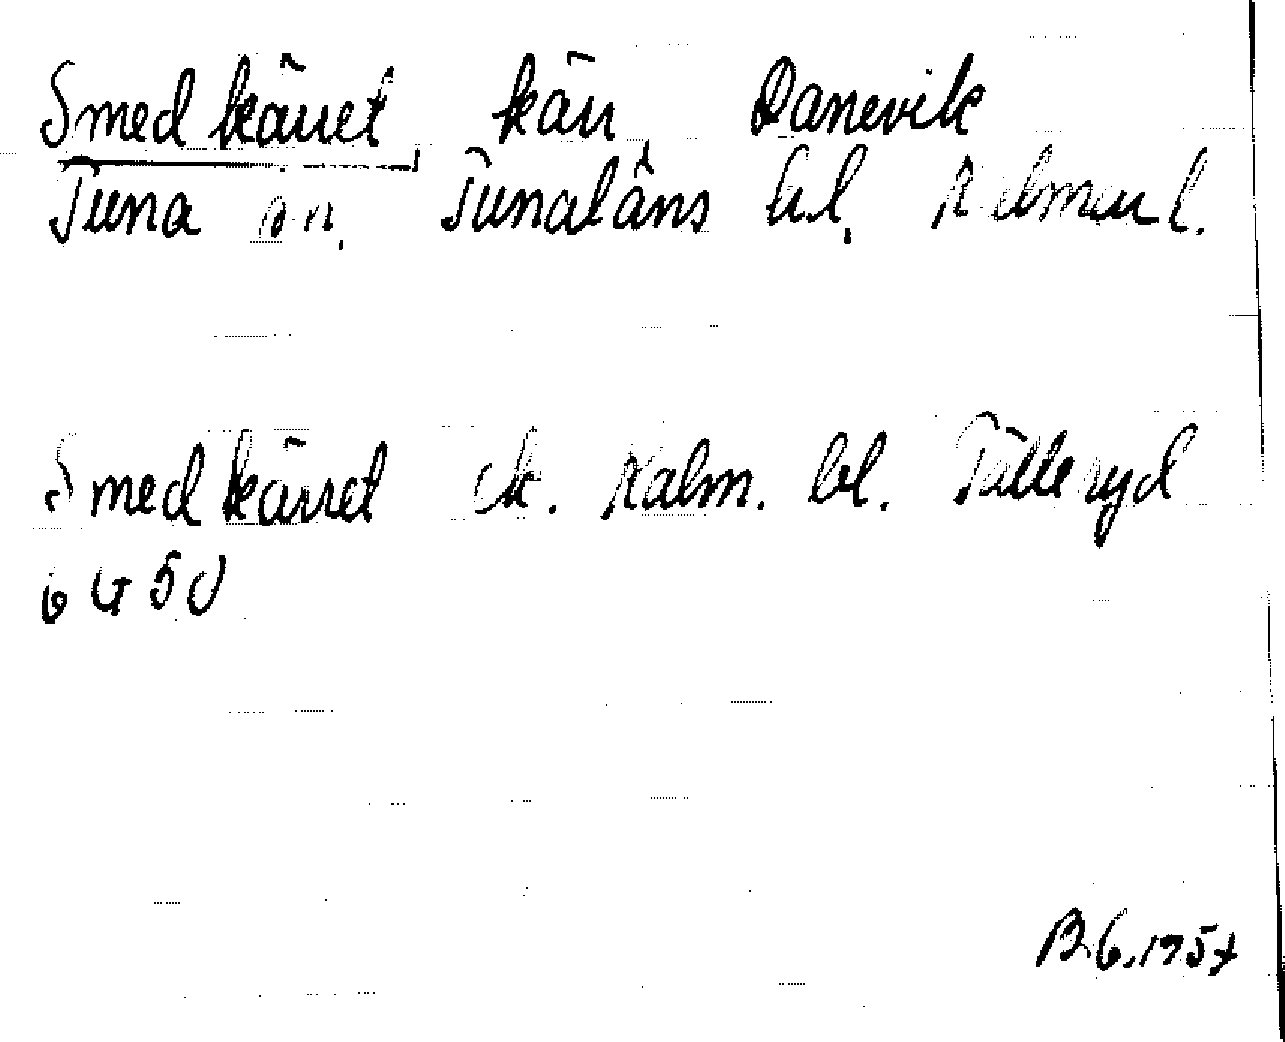 Smedkärret kärr Danevik
Tuna sn. Tunaläns hd. Kalmar l.
Smedkärret ek. Kalm. bl. Tälleryd
6450
B.G. 1957